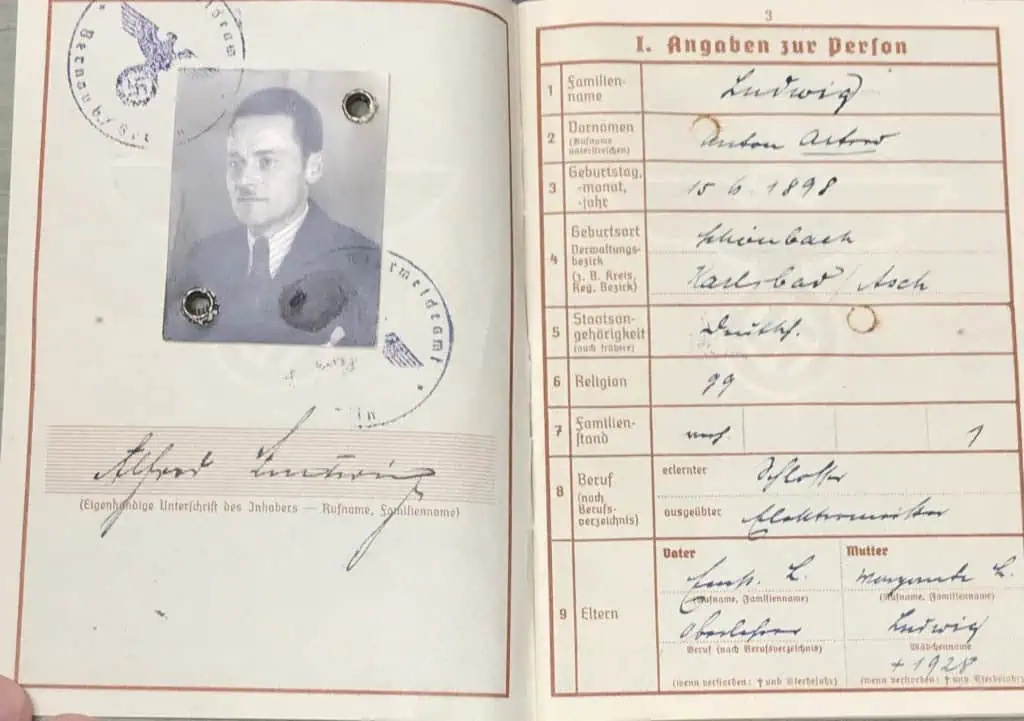 Wehrmeldeamt
Alfred Ludwig
(Eigenhändige Unterschrift des Inhabers — Rufname, Familienname)
3
I. Angaben zur Person
1 Familien-
name
Ludwig
2 Vornamen
(Rufname
unterstreichen)
Anton Alfred
3 Geburtstag,
-monat,
-jahr
15 6. 1898
4 Geburtsort
Verwaltungs-
bezirk
(z. B. Kreis,
Reg. Bezirk)
Schönbach
Karlsbad / Asch
5 Staatsan-
gehörigkeit
(auch frühere)
Deutsch.
6 Religion
gg
7 Familien-
stand
verh.
1
8 Beruf
(nach
Berufs-
verzeichnis)
erlernter
Schlosser
ausgeübter
Elektromeister
9 Eltern
Vater
Mutter
L.
Margarete L.
(Rufname, Familienname)
(Rufname, Familienname)
Oberlehrer
Ludwig
Beruf (nach Berufsverzeichnis)
Mädchenname
+ 1928
(wenn verstorben: † und Sterbejahr)
(wenn verstorben: † und Sterbejahr)